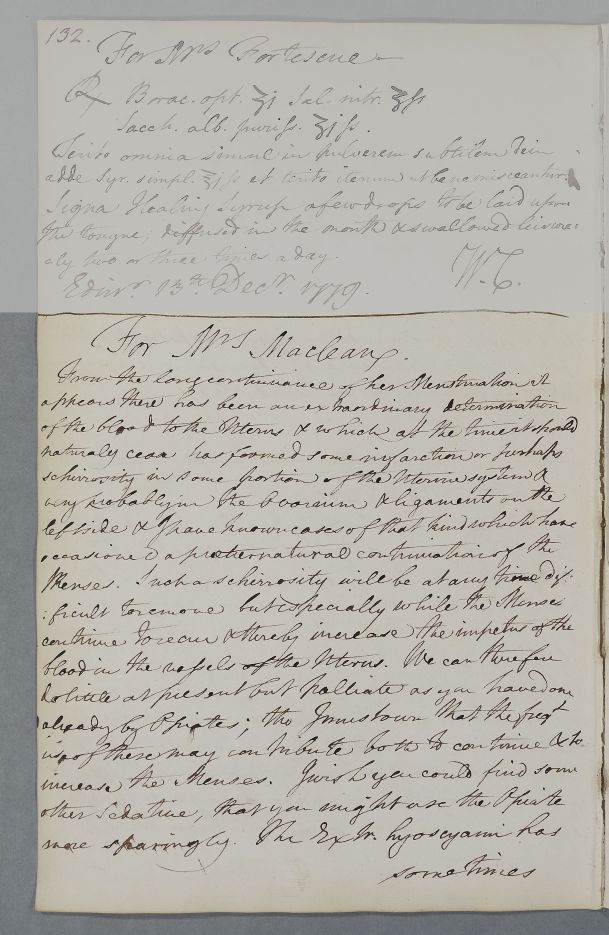 132.
For Mrs Fortescue
℞ Borac. opt. ʒj Sal. nitr. ʒſs
Sacch. alb. puriſs. ʒjſs.
Terito omnia simul in pulverem subtilem dein
adde Syr. simpl. ℥jſs et terito iterum ut bene misceantur.
Signa Healing Syrup a few drops to be laid upon
the tongue, diffused in the mouth & swallowed leisure-
ly two or three times a day.
Edinr. 13th. Decr. 1779. W.C.
For Mrs Maclean.
From the long continuance of her Menstruation it
appears there has been an extraordinary determination
of the blood to the Uterus & which at the time it should
naturaly cease has formed some infarction or perhaps
schirrosity in some portion of the Uterine system &
very probably in the Ovarium & ligaments on the
left side & I have known cases of that kind which have
occasioned a preternatural continuation of the
Menses. Such a schirrosity will be at any time dif:
:ficult to remove but especially while the Menses
continue to recur & thereby increase the impetus of the
blood in the veſsels of the Uterus. We can therefore
do little at present but palliate as you have done
already by Opiates; tho I must own that the freqt
use of these may contribute both to continue & to
increase the Menses. I wish you could find some
other Sedative, that you might use the Opiate
more sparingly. The Extr. hyoscyami has
sometimes